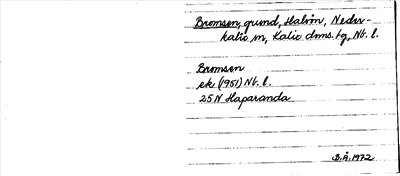 Bromsen, grund, Halsön, Neder-
kalix sn, Kalix dms. tg, Nb. l.
Bromsen
ek (1951) Nb. l.
25 N Haparanda
B.Å. 1972